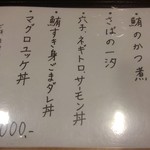 ・鮪のかつ煮
・さばの一汐
・穴子、ネギトロ、サーモン丼
・鮪すき身ごまダレ丼
・マグロユッケ丼
000,-